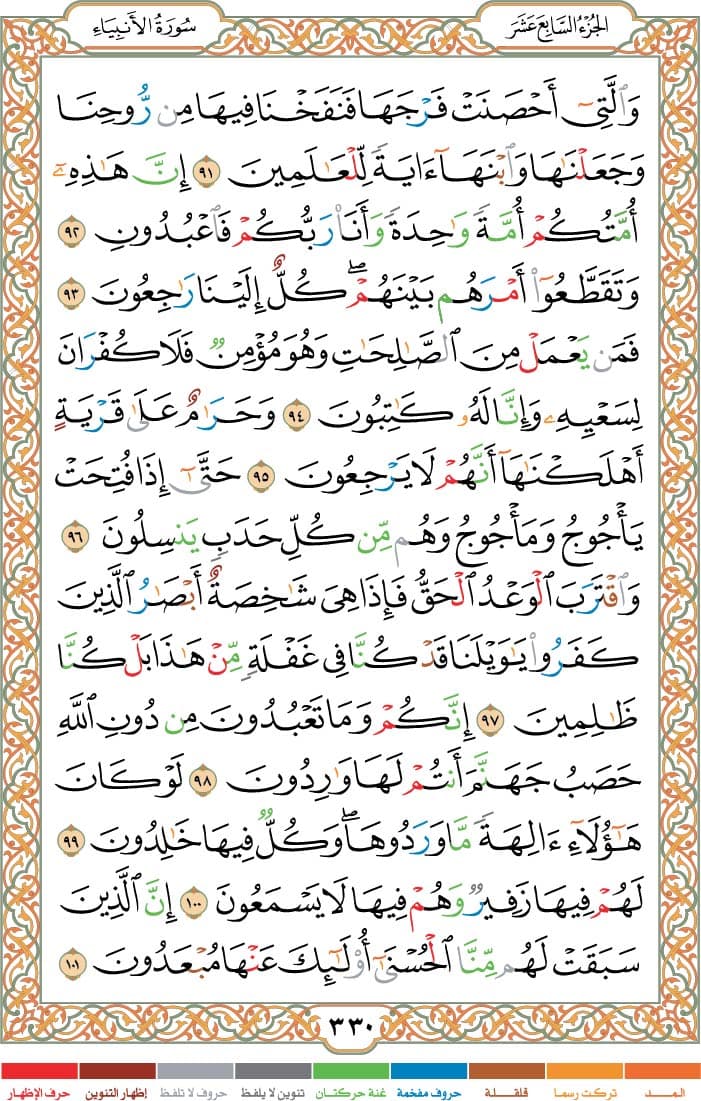 سُورَةُ الأَنبِيَاءِ
الجُزْءُ السَّابِعَ عَشَرَ
وَٱلَّتِىٓ أَحْصَنَتْ فَرْجَهَا فَنَفَخْنَا فِيهَا مِن رُّوحِنَا
وَجَعَلْنَٰهَا وَٱبْنَهَآ ءَايَةً لِّلْعَٰلَمِينَ ٩١ إِنَّ هَٰذِهِۦٓ
أُمَّتُكُمْ أُمَّةً وَٰحِدَةً وَأَنَا۠ رَبُّكُمْ فَٱعْبُدُونِ ٩٢
وَتَقَطَّعُوٓا۟ أَمْرَهُم بَيْنَهُمْ ۖ كُلٌّ إِلَيْنَا رَٰجِعُونَ ٩٣
فَمَن يَعْمَلْ مِنَ ٱلصَّٰلِحَٰتِ وَهُوَ مُؤْمِنٌ فَلَا كُفْرَانَ
لِسَعْيِهِۦ وَإِنَّا لَهُۥ كَٰتِبُونَ ٩٤ وَحَرَٰمٌ عَلَىٰ قَرْيَةٍ
أَهْلَكْنَٰهَآ أَنَّهُمْ لَا يَرْجِعُونَ ٩٥ حَتَّىٰٓ إِذَا فُتِحَتْ
يَأْجُوجُ وَمَأْجُوجُ وَهُم مِّن كُلِّ حَدَبٍ يَنسِلُونَ ٩٦
وَٱقْتَرَبَ ٱلْوَعْدُ ٱلْحَقُّ فَإِذَا هِىَ شَٰخِصَةٌ أَبْصَٰرُ ٱلَّذِينَ
كَفَرُوا۟ يَٰوَيْلَنَا قَدْ كُنَّا فِى غَفْلَةٍ مِّنْ هَٰذَا بَلْ كُنَّا
ظَٰلِمِينَ ٩٧ إِنَّكُمْ وَمَا تَعْبُدُونَ مِن دُونِ ٱللَّهِ
حَصَبُ جَهَنَّمَ أَنتُمْ لَهَا وَٰرِدُونَ ٩٨ لَوْ كَانَ
هَٰٓؤُلَآءِ ءَالِهَةً مَّا وَرَدُوهَا ۖ وَكُلٌّ فِيهَا خَٰلِدُونَ ٩٩
لَهُمْ فِيهَا زَفِيرٌ وَهُمْ فِيهَا لَا يَسْمَعُونَ ١٠٠ إِنَّ ٱلَّذِينَ
سَبَقَتْ لَهُم مِّنَّا ٱلْحُسْنَىٰٓ أُو۟لَٰٓئِكَ عَنْهَا مُبْعَدُونَ ١٠١
٣٣٠
المـــد تركت رسما قلقلة حروف مفخمة غنة حركتان تنوين لا يلفظ حروف لا تلفظ إظهار التنوين حرف الإظهار